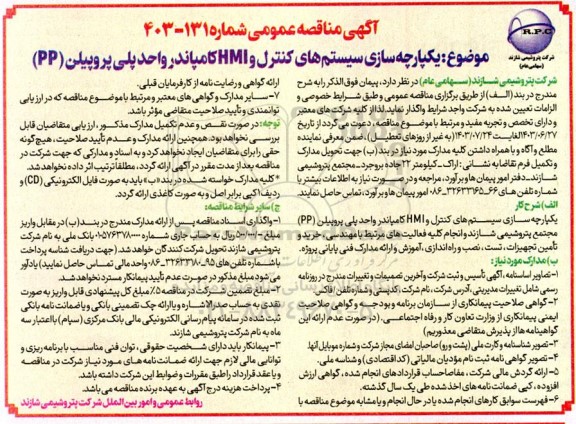 R.P.C
شرکت پتروشیمی شازند
(سهامی عام)
آگهی مناقصه عمومی شماره ۱۳۱-۴۰۳
موضوع: یکپارچه سازی سیستم های کنترل و HMI کامپاندر واحد پلی پروپیلن (PP)
شرکت پتروشیمی شازند (سهامی عام) در نظر دارد، پیمان فوق الذکر را به شرح
مندرج در بند (الف) از طریق برگزاری مناقصه عمومی و طبق شرایط خصوصی و
الزامات تعیین شده به شرکت واجد شرایط واگذار نماید. لذا از کلیه شرکت های معتبر
و دارای تخصص و تجربه مفید و مرتبط با موضوع مناقصه دعوت می گردد از تاریخ
۱۴۰۳/۰۶/۲۷ الی ۱۴۰۳/۰۷/۲۴ (به غیر از روزهای تعطیل) ضمن معرفی نماینده
مطلع و آگاه و با همراه داشتن کلیه مدارک مورد نیاز در بند (ب) جهت تحویل مدارک
و تکمیل فرم تقاضا به نشانی: اراک_کیلومتر ۲۲ جاده بروجرد_مجتمع پتروشیمی
شازند_دفتر امور پیمان ها و برآورد، مراجعه و در صورت نیاز به اطلاعات بیشتر با
شماره تلفن های ۶۶-۳۲۶۳۳۲۶۵-۰۸۶ امور پیمان ها و برآورد، تماس حاصل نمایند.
الف) شرح کار
یکپارچه سازی سیستم های کنترل و HMI کامپاندر واحد پلی پروپیلن (PP)
مجتمع پتروشیمی شازند و انجام کلیه فعالیت های مرتبط با مهندسی، خرید و
تأمین تجهیزات، تست، نصب و راه اندازی، آموزش و ارائه مدارک فنی پایانی پروژه.
ب) مدارک مورد نیاز:
۱- تصاویر اساسنامه، آگهی تأسیس و ثبت شرکت و آخرین تصمیمات و تغییرات مندرج در روزنامه
رسمی شامل تغییرات مدیریتی، آدرس شرکت، نام شرکت، آدرس ایمیل، شماره تلفن / فاکس.
۲- گواهی صلاحیت پیمانکاری از سازمان برنامه و بودجه و گواهی صلاحیت
ایمنی پیمانکاری از وزارت تعاون کار و رفاه اجتماعی. (درصورت عدم ارائه این
گواهینامه ها از پذیرش متقاضی معذوریم)
۳- تصویر شناسنامه و کارت ملی (پشت و رو) صاحبان امضای مجاز شرکت و شماره موبایل آنها.
۴- تصویر گواهی نامه ثبت نام مؤدیان مالیاتی (کد اقتصادی) و شناسه ملی.
۵- ارائه گردش مالی شرکت، مفاصاحساب قراردادهای انجام شده، گواهی ارزش
افزوده، کپی ضمانت نامه های اخذ شده طی یک سال گذشته.
۶- فهرست سوابق کارهای انجام شده یا در حال انجام و یا مشابه موضوع مناقصه با
ارائه گواهی و رضایت نامه از کارفرمایان قبلی.
۷- سایر مدارک و گواهی های معتبر و مرتبط با موضوع مناقصه که در ارزیابی
توانمندی و تأیید صلاحیت متقاضی مؤثر باشد.
توجه: در صورت نقص و عدم تکمیل مدارک مذکور، ارزیابی متقاضیان قابل
بررسی نخواهد بود. همچنین ارائه مدارک و عدم تأیید صلاحیت، هیچ گونه
حقی را برای متقاضیان ایجاد نخواهد کرد و به اسناد و مدارکی که جهت شرکت در
مناقصه بعد از مدت مقرر در آگهی ارائه گردد، مطلقاً ترتیب اثر داده نخواهد شد.
*کلیه مدارک خواسته شده در بند «ب» باید به صورت فایل الکترونیکی (CD) و
ردیف ۶ کپی برابر اصل و به صورت کاغذی ارائه گردد.
ج) سایر شرایط مناقصه:
۱- واگذاری اسناد مناقصه پس از ارائه مدارک مندرج در بند (ب) در مقابل واریز
پتروشیمی شازند تحویل شرکت کنندگان خواهد شد. (جهت دریافت شناسه پرداخت
می شود مبلغ مذکور در صورت عدم تأیید پیمانکار مسترد نخواهد شد.
۲- مبلغ تضمین سپرده شرکت در مناقصه ۵٪ مبلغ کل پیشنهادی قابل واریز به صورت
نقدی به حساب امور الاشاره و یا ارائه چک تضمینی بانکی و یا ضمانت نامه بانکی
ثبت شده در سامانه پیام رسانی الکترونیکی مالی بانک مرکزی (سپام) با اعتبار سه
ماه به نام شرکت پتروشیمی شازند.
۳- پیمانکار باید دارای شخصیت حقوقی، توان فنی مناسب با برنامه ریزی و
توانایی مالی لازم جهت ارائه ضمانت نامه های مورد نیاز شرکت در مناقصه
و یا عقد قرارداد را طبق مقررات و ضوابط این شرکت داشته باشد.
۴- پرداخت هزینه درج آگهی به عهده برنده مناقصه می باشد.
روابط عمومی و امور بین الملل شرکت پتروشیمی شازند